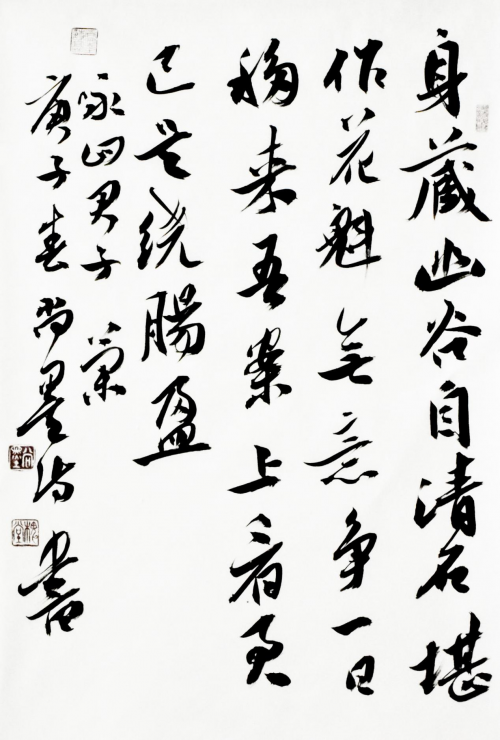 身藏幽谷自清名堪
作花魁无意争一日
移来吾案上
已是绕肠盈
咏四君子 兰
庚子春尚墨书